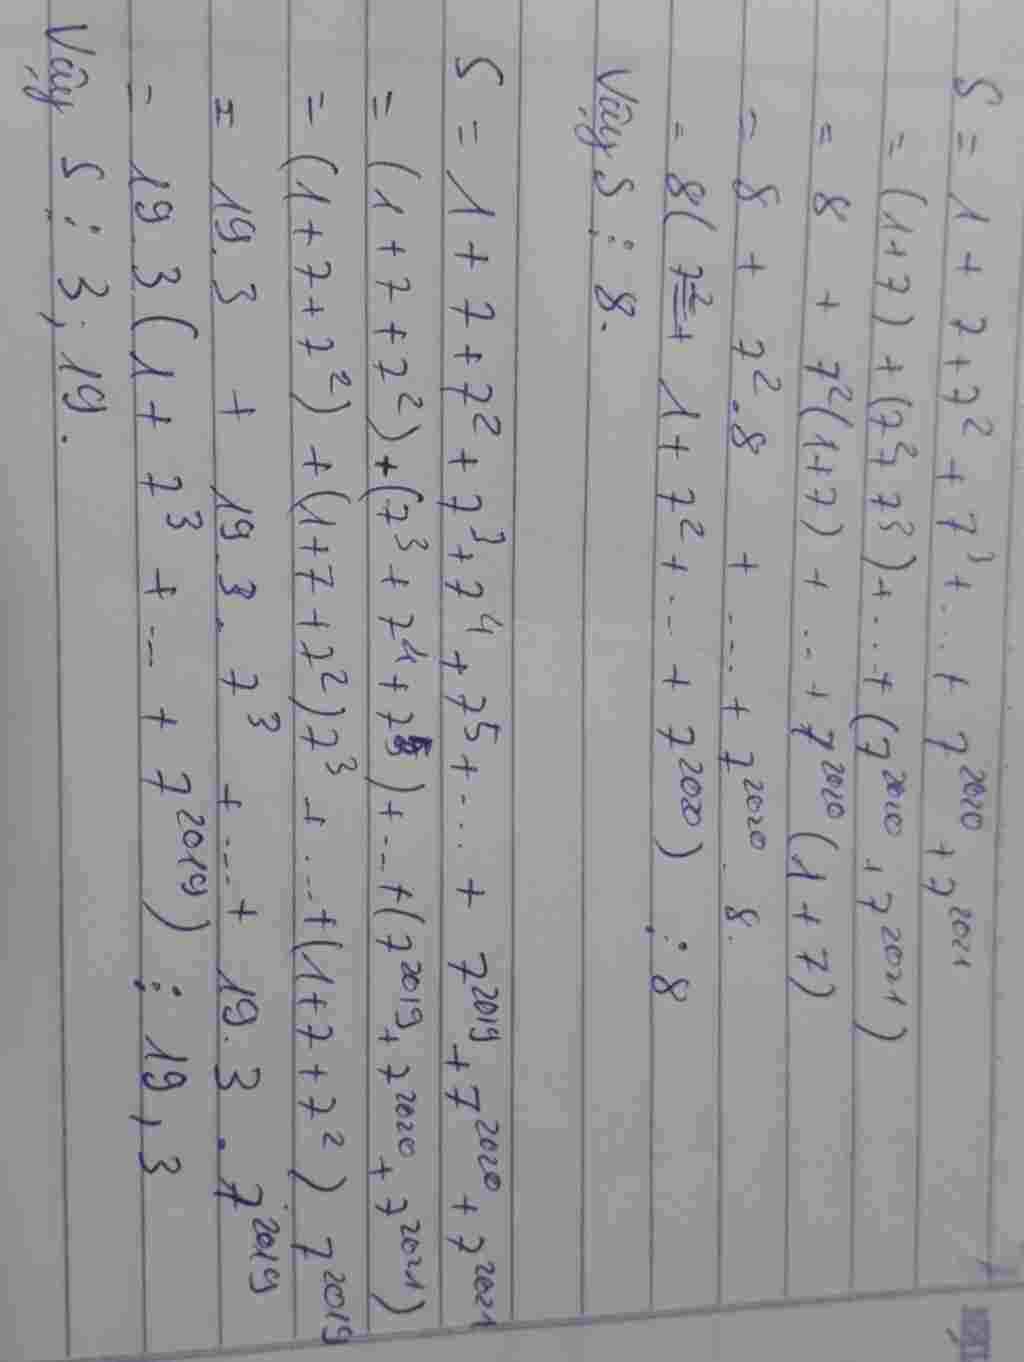 S = 1 + 7 + 7² + 7³ + ... + 7²⁰²⁰ + 7²⁰²¹
= (1+7) + (7²+7³) + ... + (7²⁰²⁰ + 7²⁰²¹)
= 8 + 7²(1+7) + ... + 7²⁰²⁰(1+7)
= 8 + 7².8 + ... + 7²⁰²⁰.8.
= 8( 1 + 7² + ... + 7²⁰²⁰) ⋮ 8
Vậy S ⋮ 8.
S = 1 + 7 + 7² + 7³ + 7⁴ + 7⁵ + ... + 7²⁰¹⁹ + 7²⁰²⁰ + 7²⁰²¹
= (1 + 7 + 7²) + (7³ + 7⁴ + 7⁵) + ... + (7²⁰¹⁹ + 7²⁰²⁰ + 7²⁰²¹)
= (1 + 7 + 7²) + (1 + 7 + 7²)7³ + ... + (1 + 7 + 7²) 7²⁰¹⁹
= 19.3 + 19.3.7³ + ... + 19.3.7²⁰¹⁹
= 19.3(1 + 7³ + ... + 7²⁰¹⁹) ⋮ 19,3
Vậy S ⋮ 3;19.